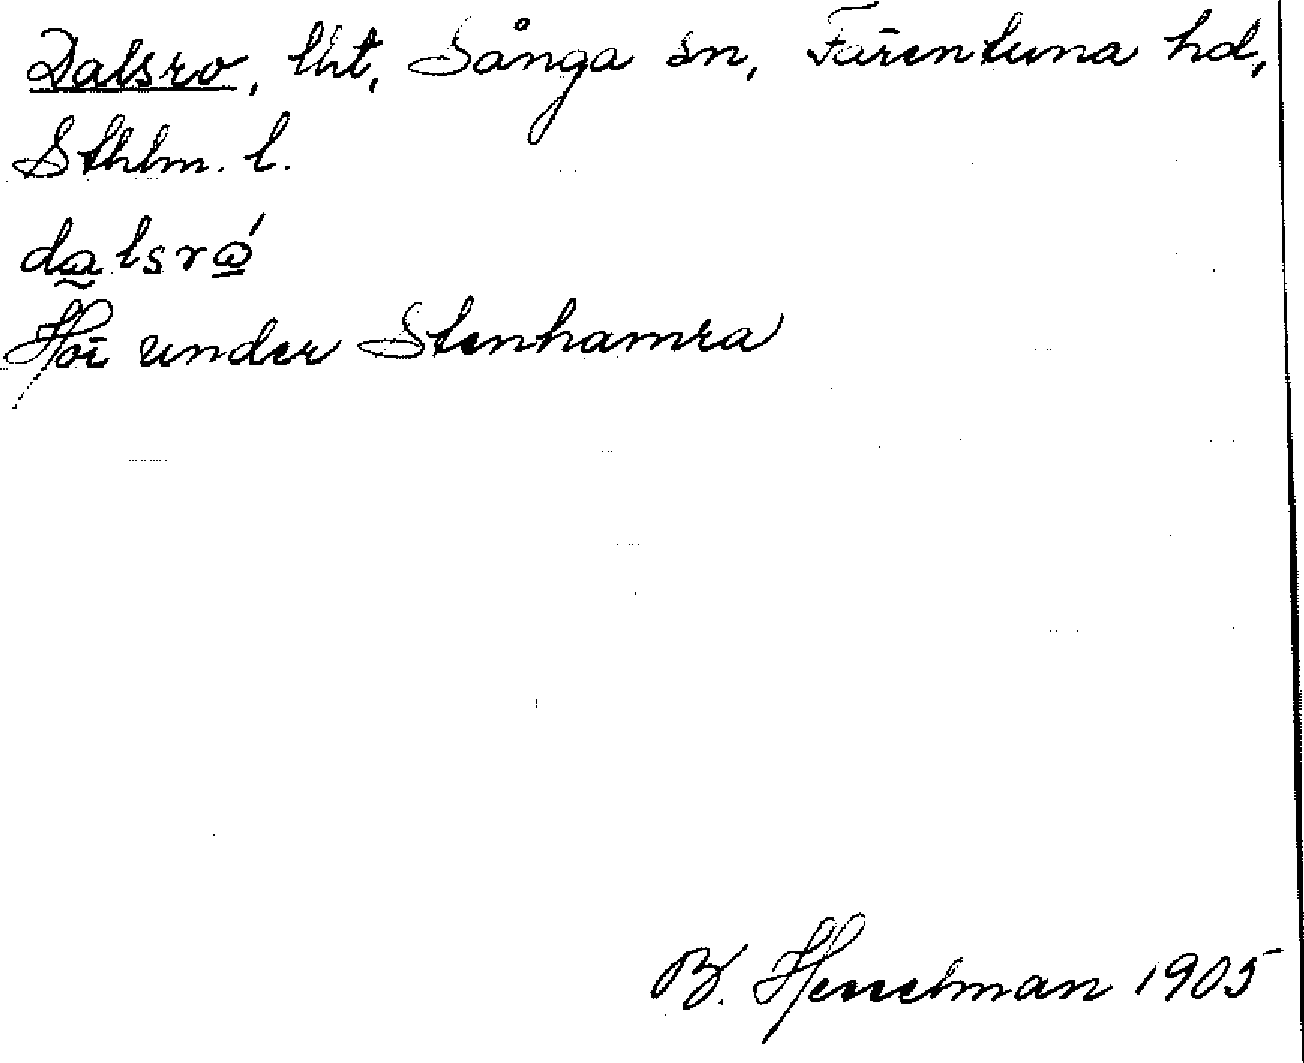 Dalsro, lht, Sånga sn, Färentuna hd,
Sthlm. l.
dalsrώ
under Stenhamra
B. Hesselman 1905